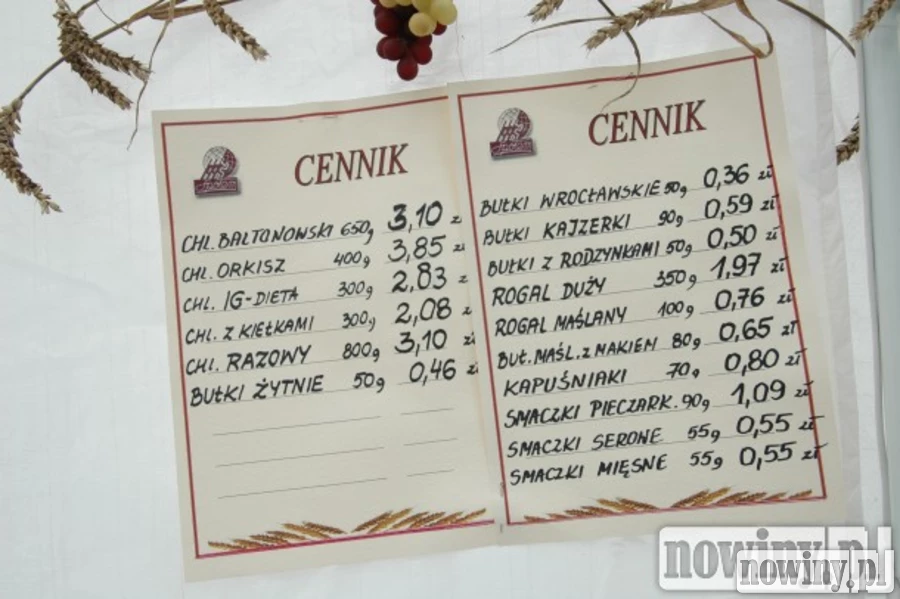 CENNIK
CHL. BALTONOWSKI 650g 3,10 zł
CHL. ORKISZ 400g 3,85 zł
CHL. IG-DIETA 300g 2,83 zł
CHL. Z KIEŁKAMI 300g 2,08 zł
CHL. RAZOWY 800g 3,10 zł
BUŁKI ŻYTNIE 50g 0,46 zł
CENNIK
BUŁKI WROCŁAWSKIE 50g 0,36 zł
BUŁKI KAJZERKI 90g 0,59 zł
BUŁKI Z RODZYNKAMI 50g 0,50 zł
ROGAL DUŻY 350g 1,97 zł
ROGAL MAŚLANY 100g 0,76 zł
BUŁ. MAŚL. Z MAKIEM 80g 0,65 zł
KAPUŚNIAKI 70g 0,80 zł
SMACZKI PIECZARK. 90g 1,09 zł
SMACZKI SEROWE 55g 0,55 zł
SMACZKI MIĘSNE 55g 0,55 zł
nowiny.pl
nowiny.pl